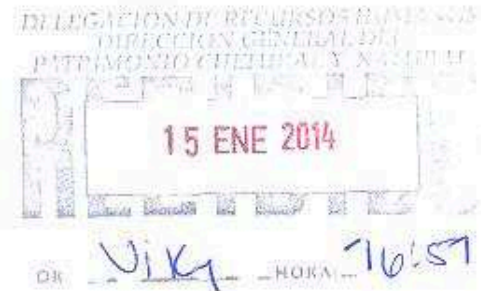 DELEGACIÓN DE RECURSOS HUMANOS
DIRECCIÓN GENERAL DEL
PATRIMONIO CULTURAL Y NATURAL
RECIBIDO
15 ENE 2014
Viky HORA 16:57